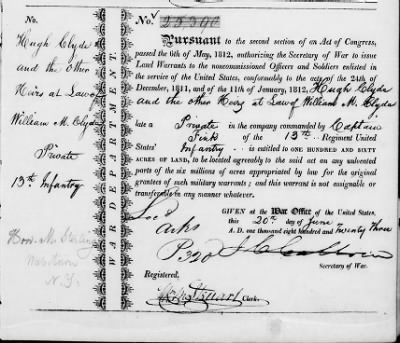 No.
Hugh Clyde
and the other
Heirs at Law of
William M. Clyde
Private
13th Infantry
N.Y.
WAR DEPARTMENT
No. 25300
Pursuant to the second section of an Act of Congress,
passed the 6th of May, 1812, authorizing the Secretary of War to issue
Land Warrants to the noncommissioned Officers and Soldiers enlisted in
the service of the United States, conformably to the acts of the 24th of
December, 1811, and of the 11th of January, 1812, Hugh Clyde
and the other Heirs at Law of William M. Clyde
late a Private in the company commanded by Captain
of the 13th Regiment United
States' Infantry is entitled to ONE HUNDRED AND SIXTY
ACRES OF LAND, to be located agreeably to the said act on any unlocated
part of the six millions of acres appropriated by law for the original
grantees of such military warrants; and this warrant is not assignable or
transferable in any manner whatever.
GIVEN at the War Office of the United States,
this 20th day of June
A. D. one thousand eight hundred and twenty three
P320
J C Calhoun
Secretary of War.
Registered,
Stuart Clerk.